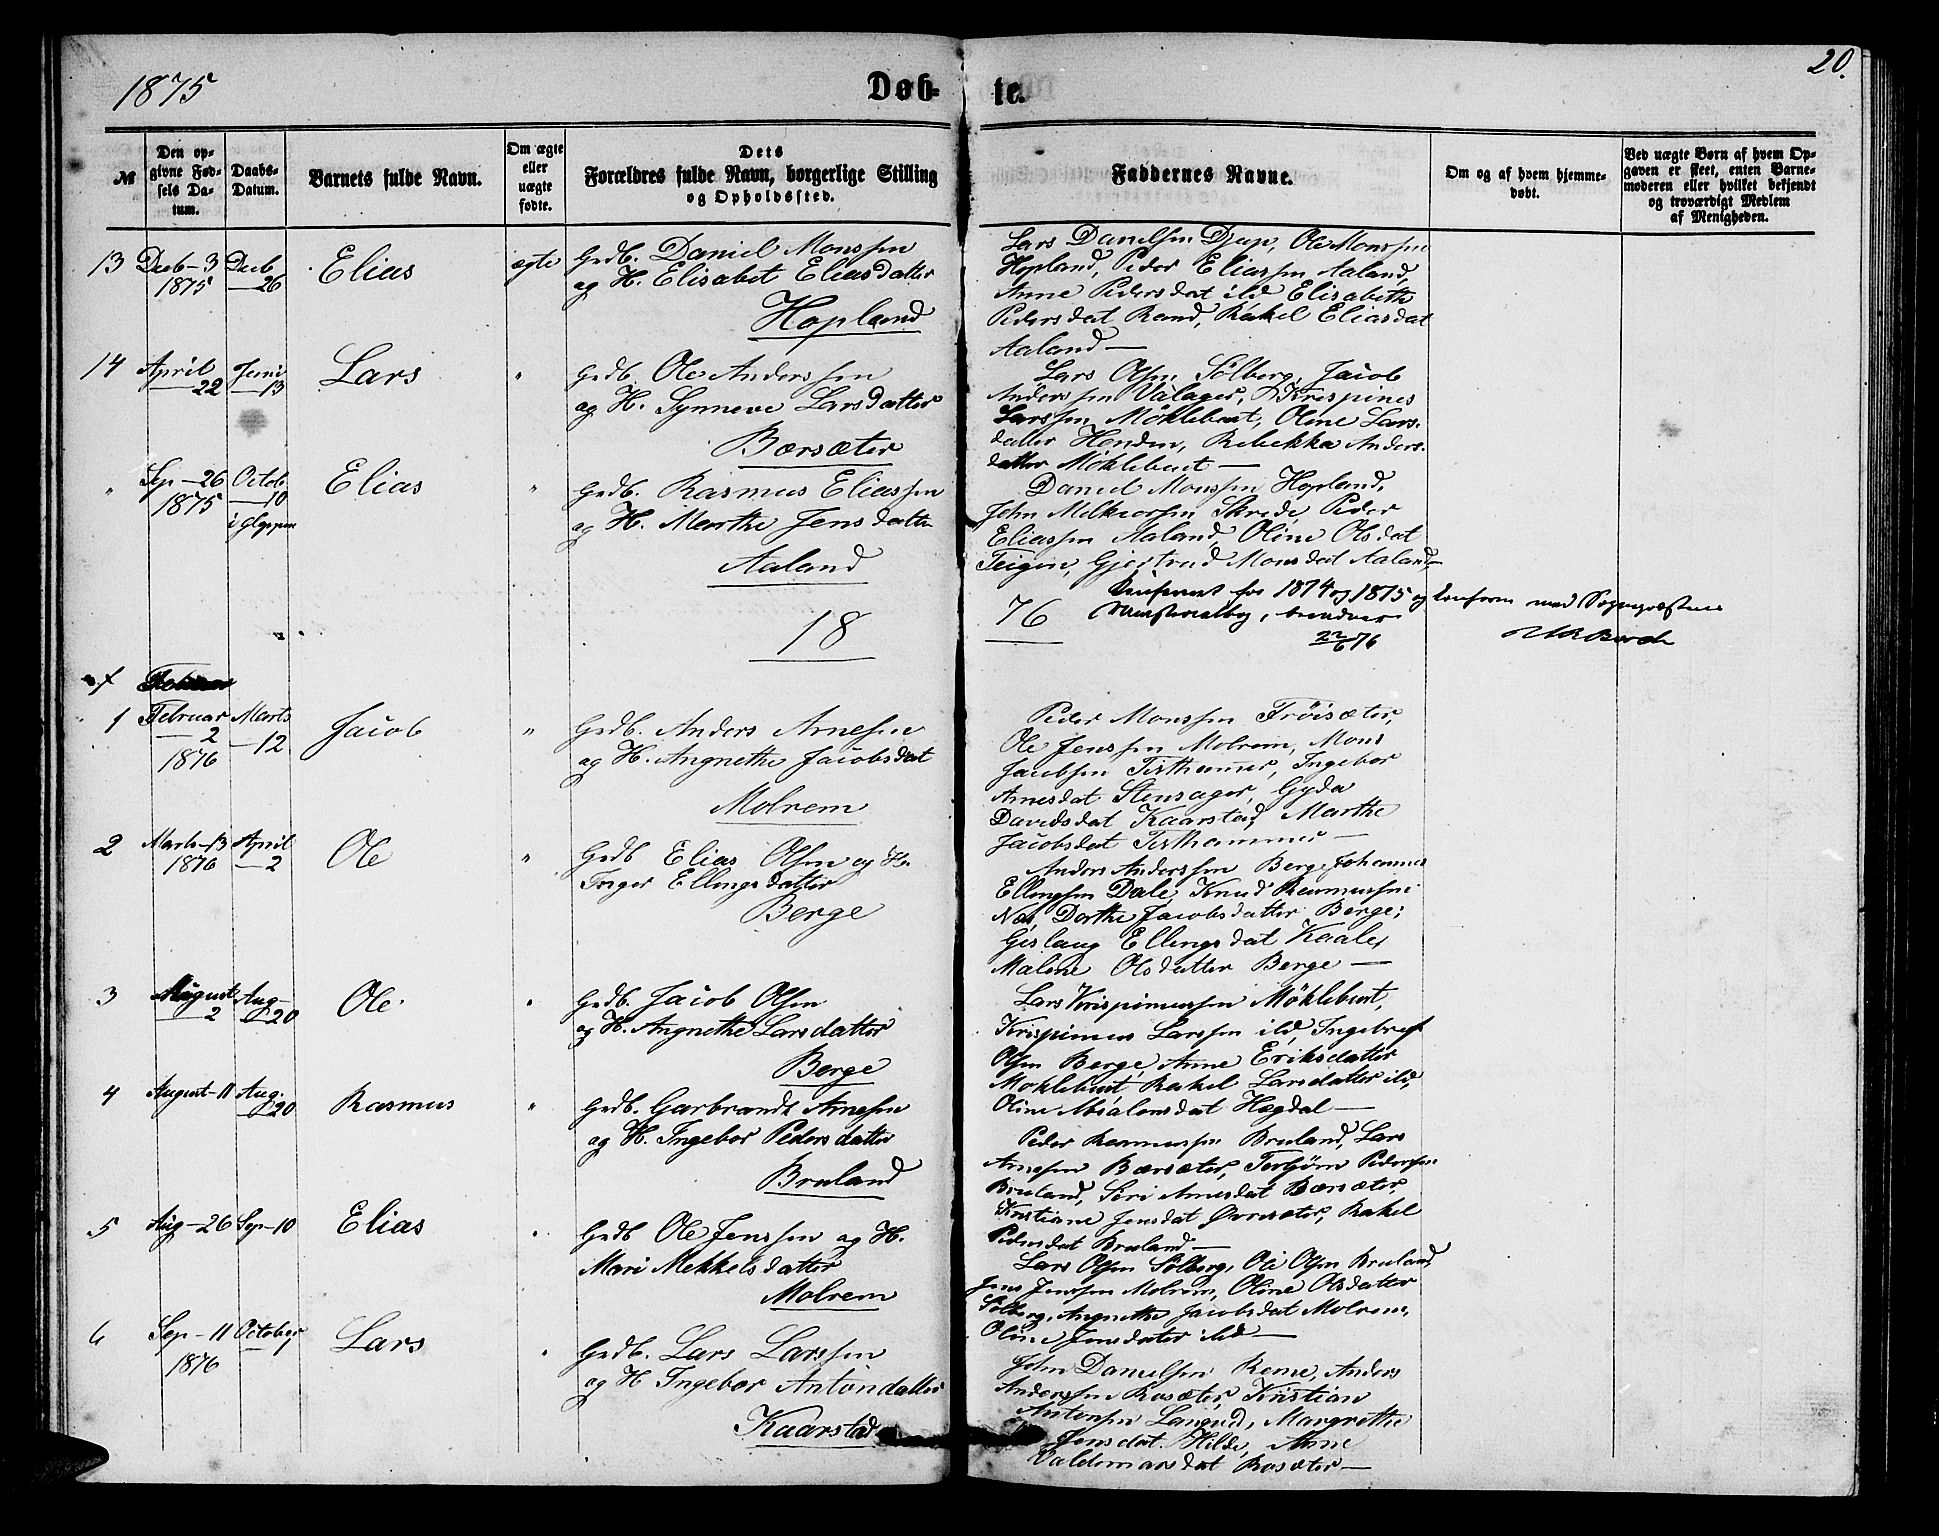 1875
Døb-
te.
20.
№
Den op-
givne Fød-
sels Da-
tum.
Daabs-
Datum.
Barnets fulde Navn.
Om ægte
eller
uægte
fødte.
Dets
Forældres fulde Navn, borgerlige Stilling
og Opholdssted.
Faddernes Navne.
Om og af hvem hjemme-
døbt.
Ved uægte Børn af hvem Op-
gaven er skeet, enten Barne-
moderen eller hvilket bekjendt
og troværdigt Medlem
af Menigheden.
13
Decb-3
1875
Decb
—26
Elias
ægte
Grdb. Daniel Monssen
og H. Elisabet Eliasdatter
Hopland
Lars Danielsen Djup, Ole Monssen
Hopland, Peder Eliassen Aaland,
Anne Pedersdat ild Elisabeth
Pedersdat Rand, Rakel Eliasdat
Aaland—
14
April
—22
Juni
—13
Lars
"
Grdb. Ole Anderssen
og H. Synneve Larsdatter
Børsæter
Lars Olsen Sölberg, Jacob
Anderssen Välager, Krispines
Larssen Möklebust, Oline Lars-
datter Henden, Rebekka Anders-
datter Möklebust—
"
Sep-26
1875
Octob.
—10
i Gloppen
Elias
"
Grdb. Rasmus Eliassen
og H. Marthe Jensdatter
Aaland
Daniel Monssen Hopland,
John Melkiorsen Skrede Peder
Eliassen Aaland, Oline Olsdat
Teigen, Gjertrud Monsdat Aaland—
18
76
for 1874 og 1875 og konform med
22/6 76
Februar
1
Februar
—2
1876
Marts
—12
Jacob
"
Grdb. Anders Arnesen
og H. Angnethe Jacobsdat
Molrem
Peder Monssen Tröisæter,
Ole Jenssen Molrem, Mons
Jacobsen Tisthammer, Ingebor
Arnesdat Stensager, Gyda
Davidsdat Kaarstad, Marthe
Jacobsdat Tisthammer—
2
Marts-13
1876
April
—2
Ole
"
Grdb Elias Olsen og H.
Inger Ellingsdatter
Berge
Anders Anderssen Berg, Johannes
Ellingssen Dale, Knud Rasmussen
Nes, Dorthe Jacobsdatter Berge,
Gislaug Ellingsdat Kaale,
Malene Olsdatter Berge—
3
August
—2
Aug-
20
Ole
"
Grdb. Jacob Olsen
og H. Angnethe Larsdatter
Berge
Lars Krispinussen Möklebust,
Krispinus Larssen ild, Ingebregt
Olsen Berge, Anne Eriksdatter
Möklebust, Rakel Larsdatter ild,
Oline Absalonsdat Hægdal—
4
August-11
Aug.
20
Rasmus
"
Grdb. Garbrandt Arnesen
og H. Ingebor Pedersdatter
Bruland
Peder Rasmussen Bruland, Lars
Arnesen Børsæter, Terbjörn Pedersen
Bruland, Siri Arnesdat Børsæter,
Kristiane Jensdat Øvresæter, Rakel
Pedersdat Bruland—
5
Aug-26
Sep-10
Elias
"
Grdb Ole Jenssen og H.
Mari Mekkelsdatter
Molrem
Lars Olsen Sölberg, Ole Olsen Bruland,
Jens Jenssen Molrem, Oline Olsdatter
Sölberg, Angnethe Jacobsdat Molrem,
Oline Jensdatter ild—
6
Sep-11
1876
October
Lars
"
Grdb. Lars Larssen
og H Ingebor Antondatter
Kaarstad
John Danielsen Reme, Anders
Anderssen Rosæter, Kristian
Antonsen Langed, Margrethe
Jensdat. Hilde, Anne
Valdemarsdat Rosæter—